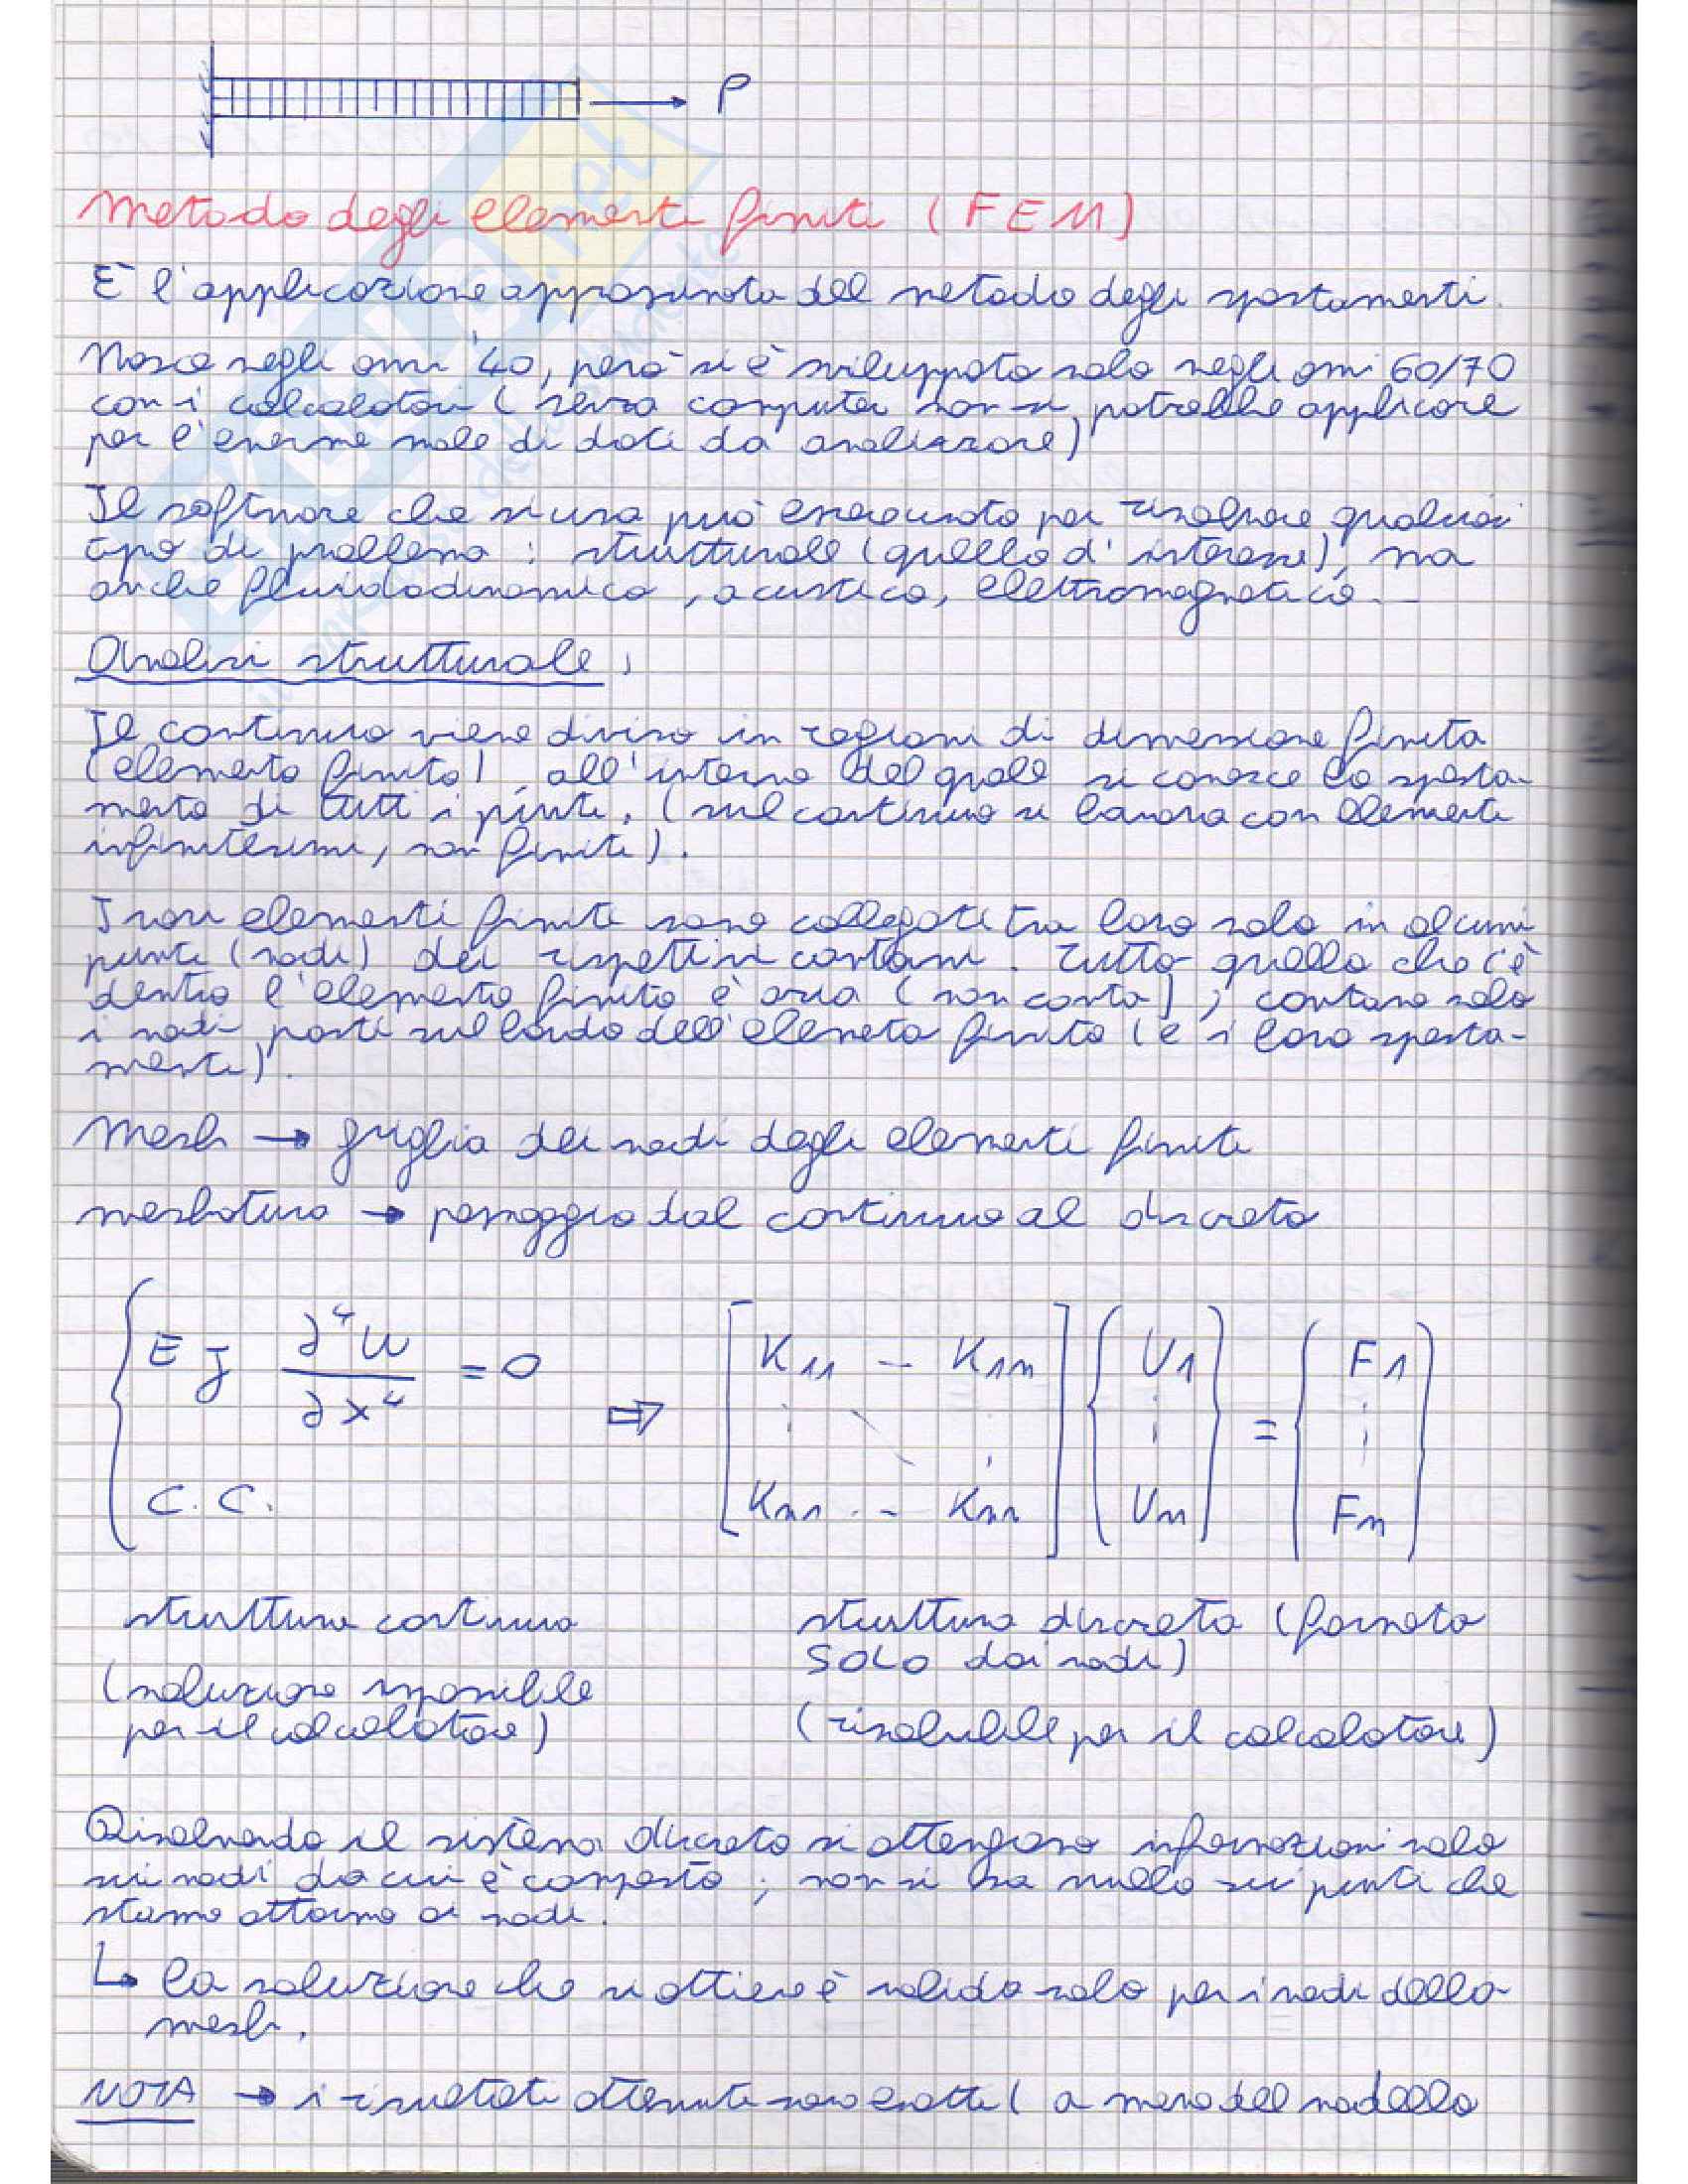 P
Metodo degli elementi finiti (FEM)
È l'applicazione approssimata del metodo degli spostamenti.
Nasce negli anni '40, però si è sviluppato solo negli anni 60/70
con i calcolatori (senza computer non si potrebbe applicare
per l'enorme mole di dati da analizzare)
Il software che si usa può essere usato per risolvere qualsiasi
tipo di problema : strutturale (quello d'interesse), ma
anche fluidodinamico, acustico, elettromagnetico...
Analisi strutturale:
Il continuo viene diviso in regioni di dimensione finita
(elemento finito), all'interno del quale si conosce lo sposta-
mento di tutti i punti. (sul continuo si lavora con elementi
infinitesimi, non finiti).
I vari elementi finiti sono collegati tra loro solo in alcuni
punti (nodi) dei rispettivi contorni. Tutto quello che c'è
dentro l'elemento finito è aria (non conta); contano solo
i nodi posti sul bordo dell'elemeto finito (e i loro sposta-
menti).
Mesh → griglia dei nodi degli elementi finiti
meshatura → passaggio dal continuo al discreto
{ E J ∂⁴u/∂x⁴ = 0 ⇒ [K11 - K1n] {U1} = {F1}
C.C. [Kn1 . - Knn] {Un} {Fn}
struttura continua struttura discreta (formata
SOLO dai nodi)
(soluzione impossibile
per il calcolatore) (risolubile per il calcolatore)
Risolvendo il sistema discreto si ottengono informazioni solo
sui nodi da cui è composto; non si sa nulla sui punti che
stanno attorno ai nodi.
↳ la soluzione che si ottiene è valida solo per i nodi della
mesh.
NOTA → i risultati ottenuti sono esatti (a meno del modello
il
.net